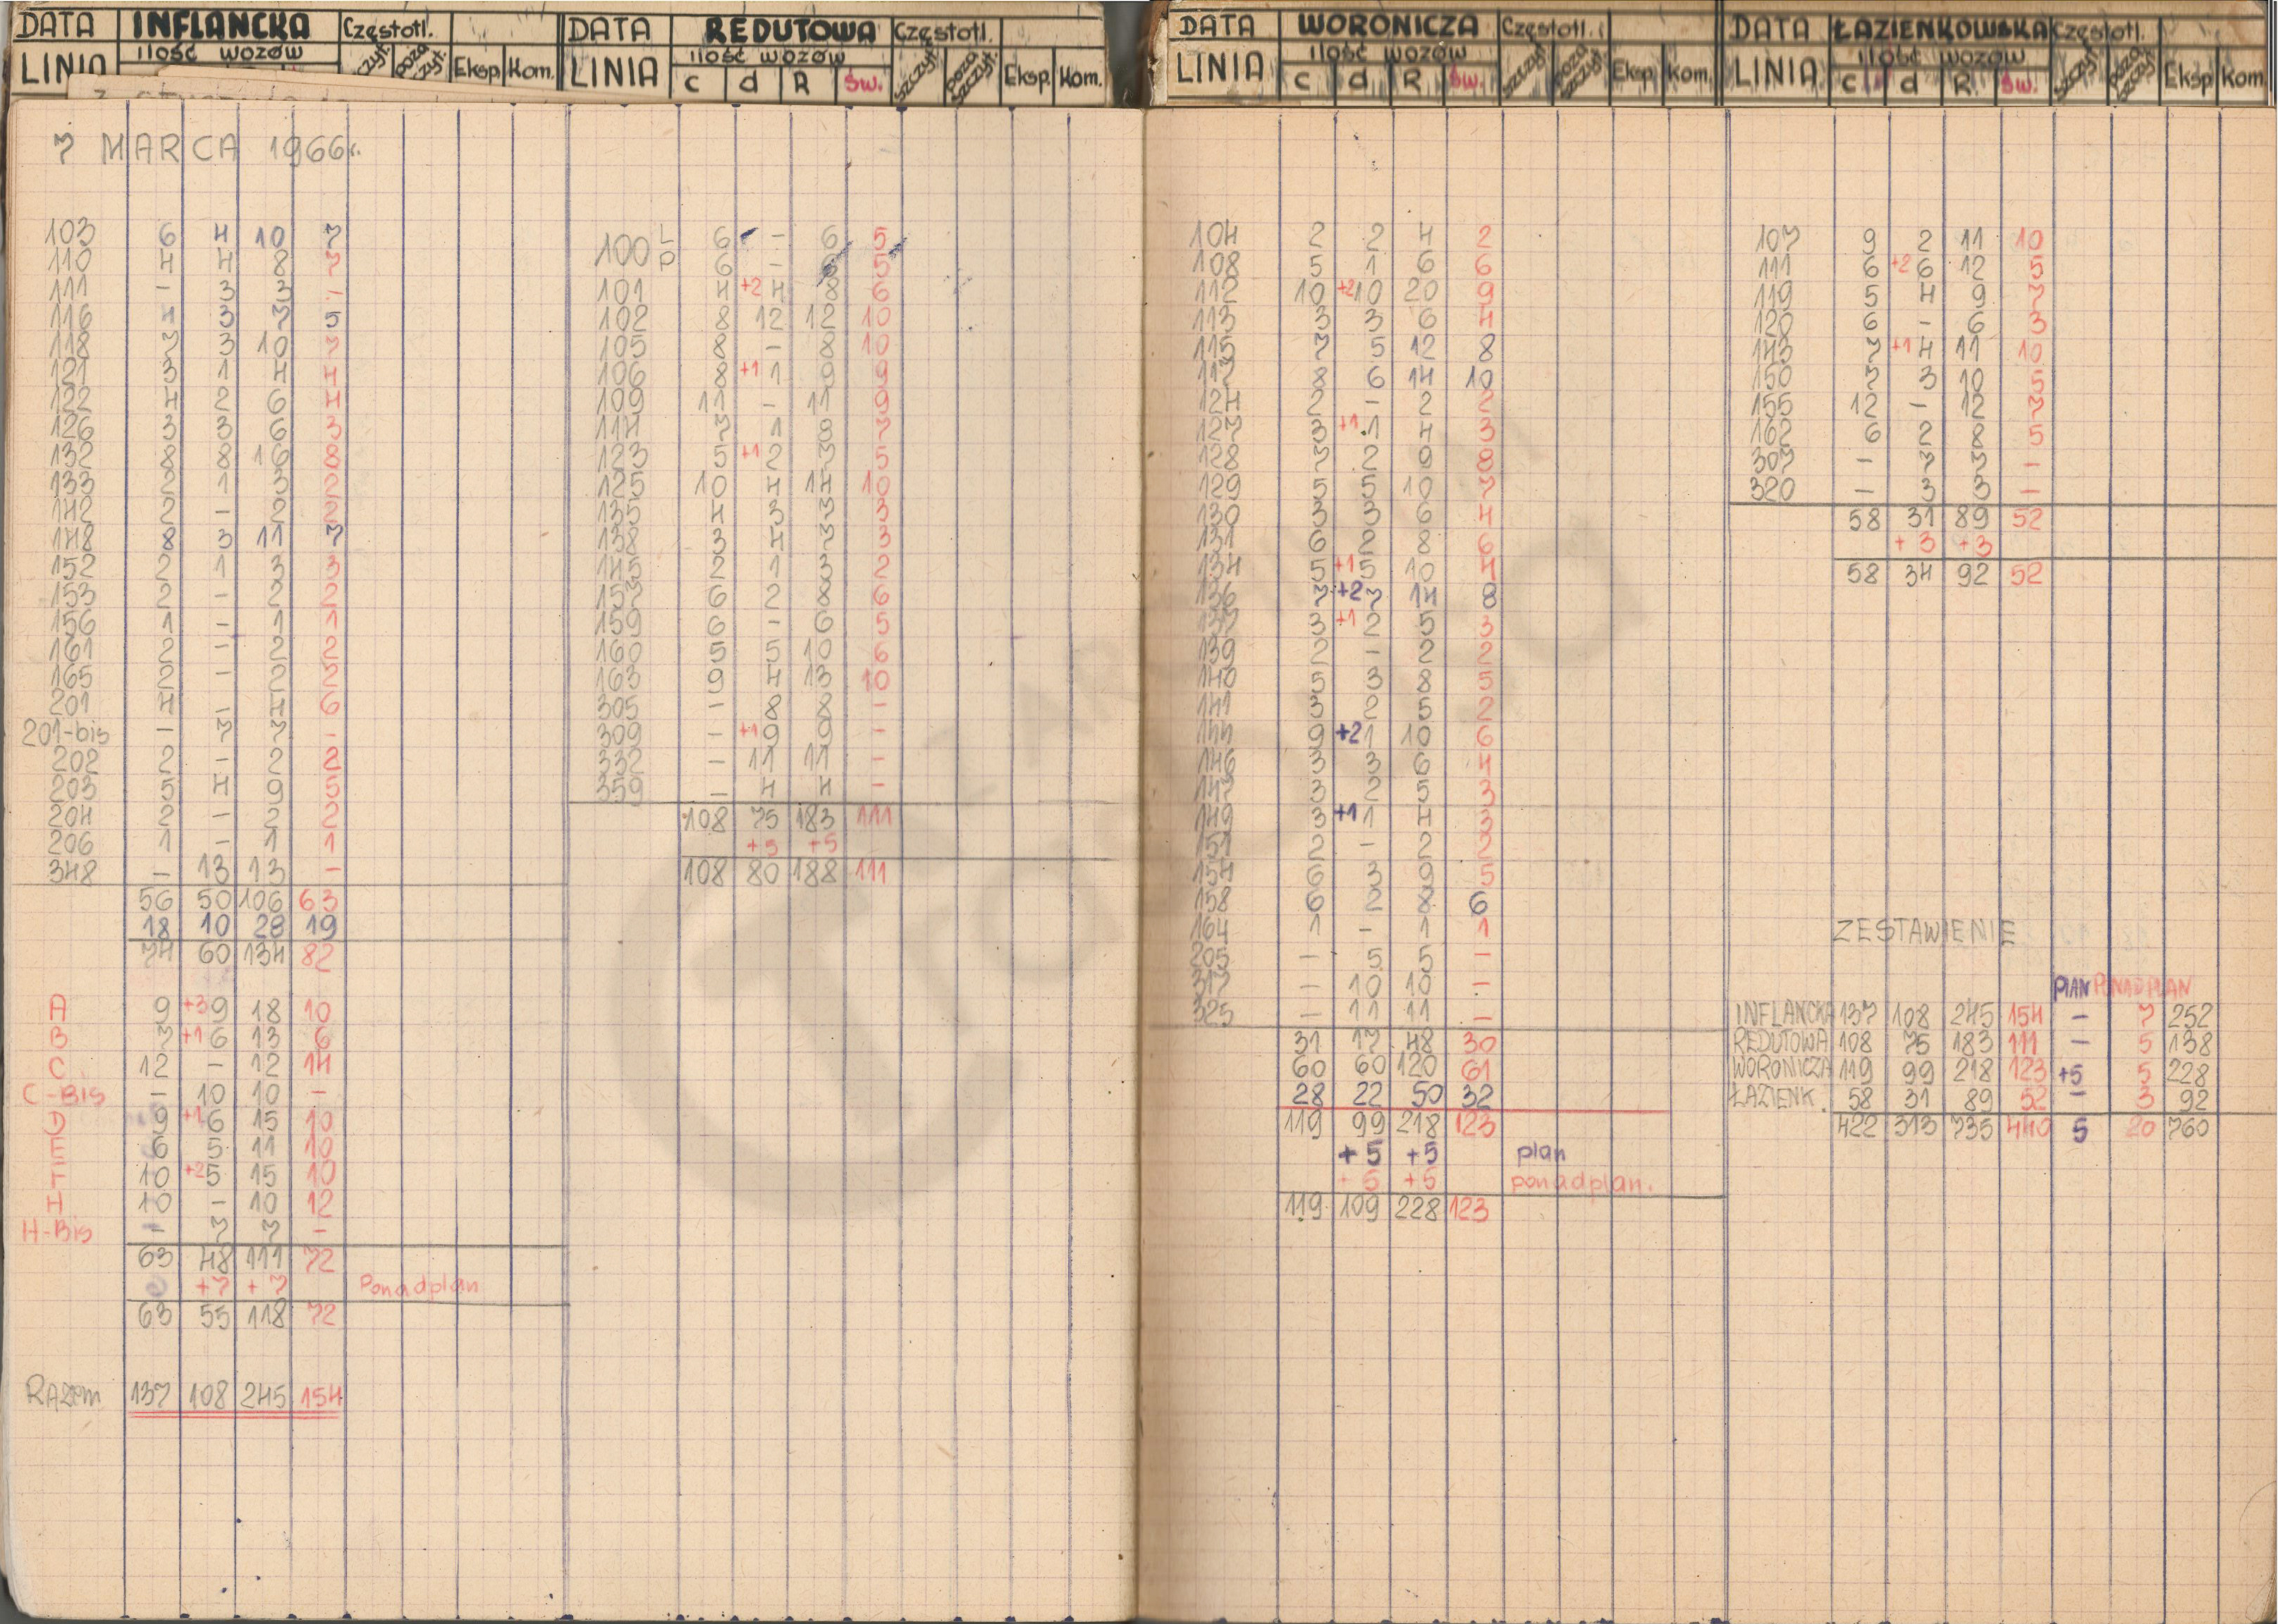 DATA INFLANCKA Częstotl.
LINIA ilość wozów szczyt. poza szczyt. Eksp. Kom.
7 MARCA 1966r.
103 6 4 10 7
110 4 4 8 7
111 - 3 3 -
116 4 3 7 5
118 7 3 10 7
121 3 1 4 4
122 4 2 6 4
126 3 3 6 3
132 8 8 16 8
133 2 1 3 2
142 2 - 2 2
148 8 3 11 7
152 2 1 3 3
153 2 - 2 2
156 1 - 1 1
161 2 - 2 2
165 2 - 2 2
201 4 - 4 6
201-bis - 7 7 -
202 2 - 2 2
203 5 4 9 5
204 2 - 2 2
206 1 - 1 1
348 - 13 13 -
56 50 106 63
18 10 28 19
74 60 134 82
A 9 +3 9 18 10
B 7 +1 6 13 6
C 12 - 12 14
C-Bis - 10 10 -
D 9 +1 6 15 10
E 6 5 11 10
F 10 +2 5 15 10
H 10 - 10 12
H-Bis - 7 7 -
63 48 111 72
+7 +7 Ponadplan
63 55 118 72
RAZem 137 108 245 154
DATA REDUTOWA Częstotl.
LINIA ilość wozów c d R Św. szczyt. poza szczyt. Eksp. Kom.
100 L 6 - 6 5
P 6 - 6 5
101 4 +2 4 8 6
102 8 12 12 10
105 8 - 8 10
106 8 +1 1 9 9
109 11 - 11 9
114 7 1 8 7
123 5 +1 2 7 5
125 10 4 14 10
135 4 3 7 3
138 3 4 7 3
145 2 1 3 2
157 6 2 8 6
159 6 - 6 5
160 5 5 10 6
163 9 4 13 10
305 - 8 8 -
309 - +1 9 9 -
332 - 11 11 -
359 - 4 4 -
108 75 183 111
+5 +5
108 80 188 111
DATA WORONICZA Częstotl.
LINIA ilość wozów c d R Św. szczyt. poza szczyt. Eksp. Kom.
104 2 2 4 2
108 5 1 6 6
112 10 +2 10 20 9
113 3 3 6 4
115 7 5 12 8
117 8 6 14 10
124 2 - 2 2
127 3 +1 1 4 3
128 7 2 9 8
129 5 5 10 7
130 3 3 6 4
131 6 2 8 6
134 5 +1 5 10 4
136 7 +2 7 14 8
137 3 +1 2 5 3
139 2 - 2 2
140 5 3 8 5
141 3 2 5 2
144 9 +2 1 10 6
146 3 3 6 4
147 3 2 5 3
149 3 +1 1 4 3
151 2 - 2 2
154 6 3 9 5
158 6 2 8 6
164 1 - 1 1
205 - 5 5 -
317 - 10 10 -
325 - 11 11 -
31 17 48 30
60 60 120 61
28 22 50 32
119 99 218 123
+5 +5 plan
+5 +5 ponadplan.
119 109 228 123
DATA ŁAZIENKOWSKA Częstotl.
LINIA ilość wozów c d R Św. szczyt. poza szczyt. Eksp. Kom.
107 9 2 11 10
111 6 +2 6 12 5
119 5 4 9 7
120 6 - 6 3
143 7 +1 4 11 10
150 7 3 10 5
155 12 - 12 7
162 6 2 8 5
307 - 7 7 -
320 - 3 3 -
58 31 89 52
+3 +3
58 34 92 52
ZESTAWIENIE
PLAN PONADPLAN
INFLANCKA 137 108 245 154 - 7 252
REDUTOWA 108 75 183 111 - 5 138
WORONICZA 119 99 218 123 +5 5 228
ŁAZIENK. 58 31 89 52 - 3 92
422 313 735 440 5 20 760